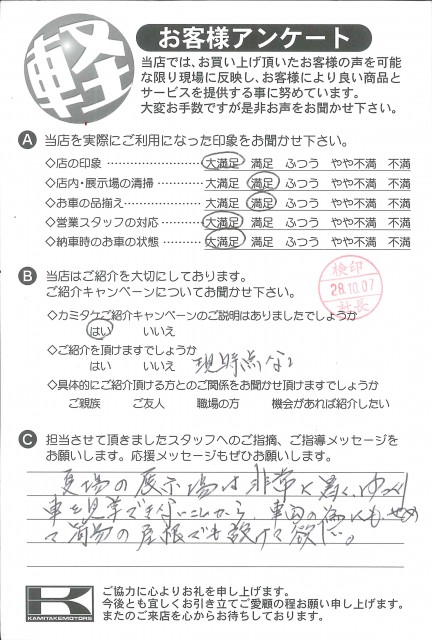 軽
お客様アンケート
当店では、お買い上げ頂いたお客様の声を可能
な限り現場に反映し、お客様により良い商品と
サービスを提供する事に努めています。
大変お手数ですが是非お声をお聞かせ下さい。
A 当店を実際にご利用になった印象をお聞かせ下さい。
◇店の印象 ………………… 大満足 満足 ふつう やや不満 不満
◇店内・展示場の清掃………… 大満足 満足 ふつう やや不満 不満
◇お車の品揃え……………… 大満足 満足 ふつう やや不満 不満
◇営業スタッフの対応 ……… 大満足 満足 ふつう やや不満 不満
◇納車時のお車の状態 ……… 大満足 満足 ふつう やや不満 不満
B 当店はご紹介を大切にしております。
ご紹介キャンペーンについてお聞かせ下さい。
検印
28.10.07
社長
◇カミタケご紹介キャンペーンのご説明はありましたでしょうか
はい いいえ
◇ご紹介を頂けますでしょうか
はい いいえ 現時点なし
◇具体的にご紹介頂ける方とのご関係をお聞かせ頂けますでしょうか
ご親族 ご友人 職場の方 機会があれば紹介したい
C 担当させて頂きましたスタッフへのご指摘、ご指導メッセージを
お願いします。応援メッセージもぜひお願します。
夏場の展示場は非常に暑く、ゆっくり
車を見学できないことから、車両の為にも、せめ
て簡易の屋根でも設けて欲しい。
K
KAMITAKEMOTORS
ご協力に心よりお礼を申し上げます。
今後とも宜しくお引き立てご愛顧の程お願い申し上げます。
またのご来店を心からお待ちしております。